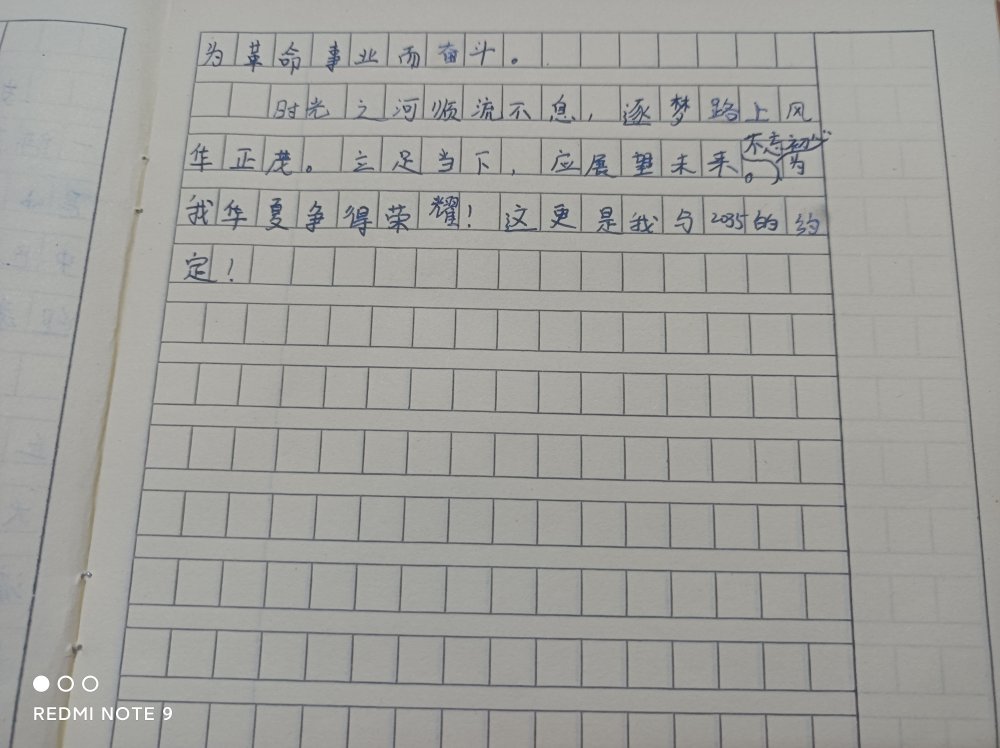 为革命事业而奋斗。
时光之河顺流不息,逐梦路上风
华正茂。立足当下,应展望未来。不忘初心,为
我华夏争得荣耀!这更是我与2035的约
定!
REDMI NOTE 9